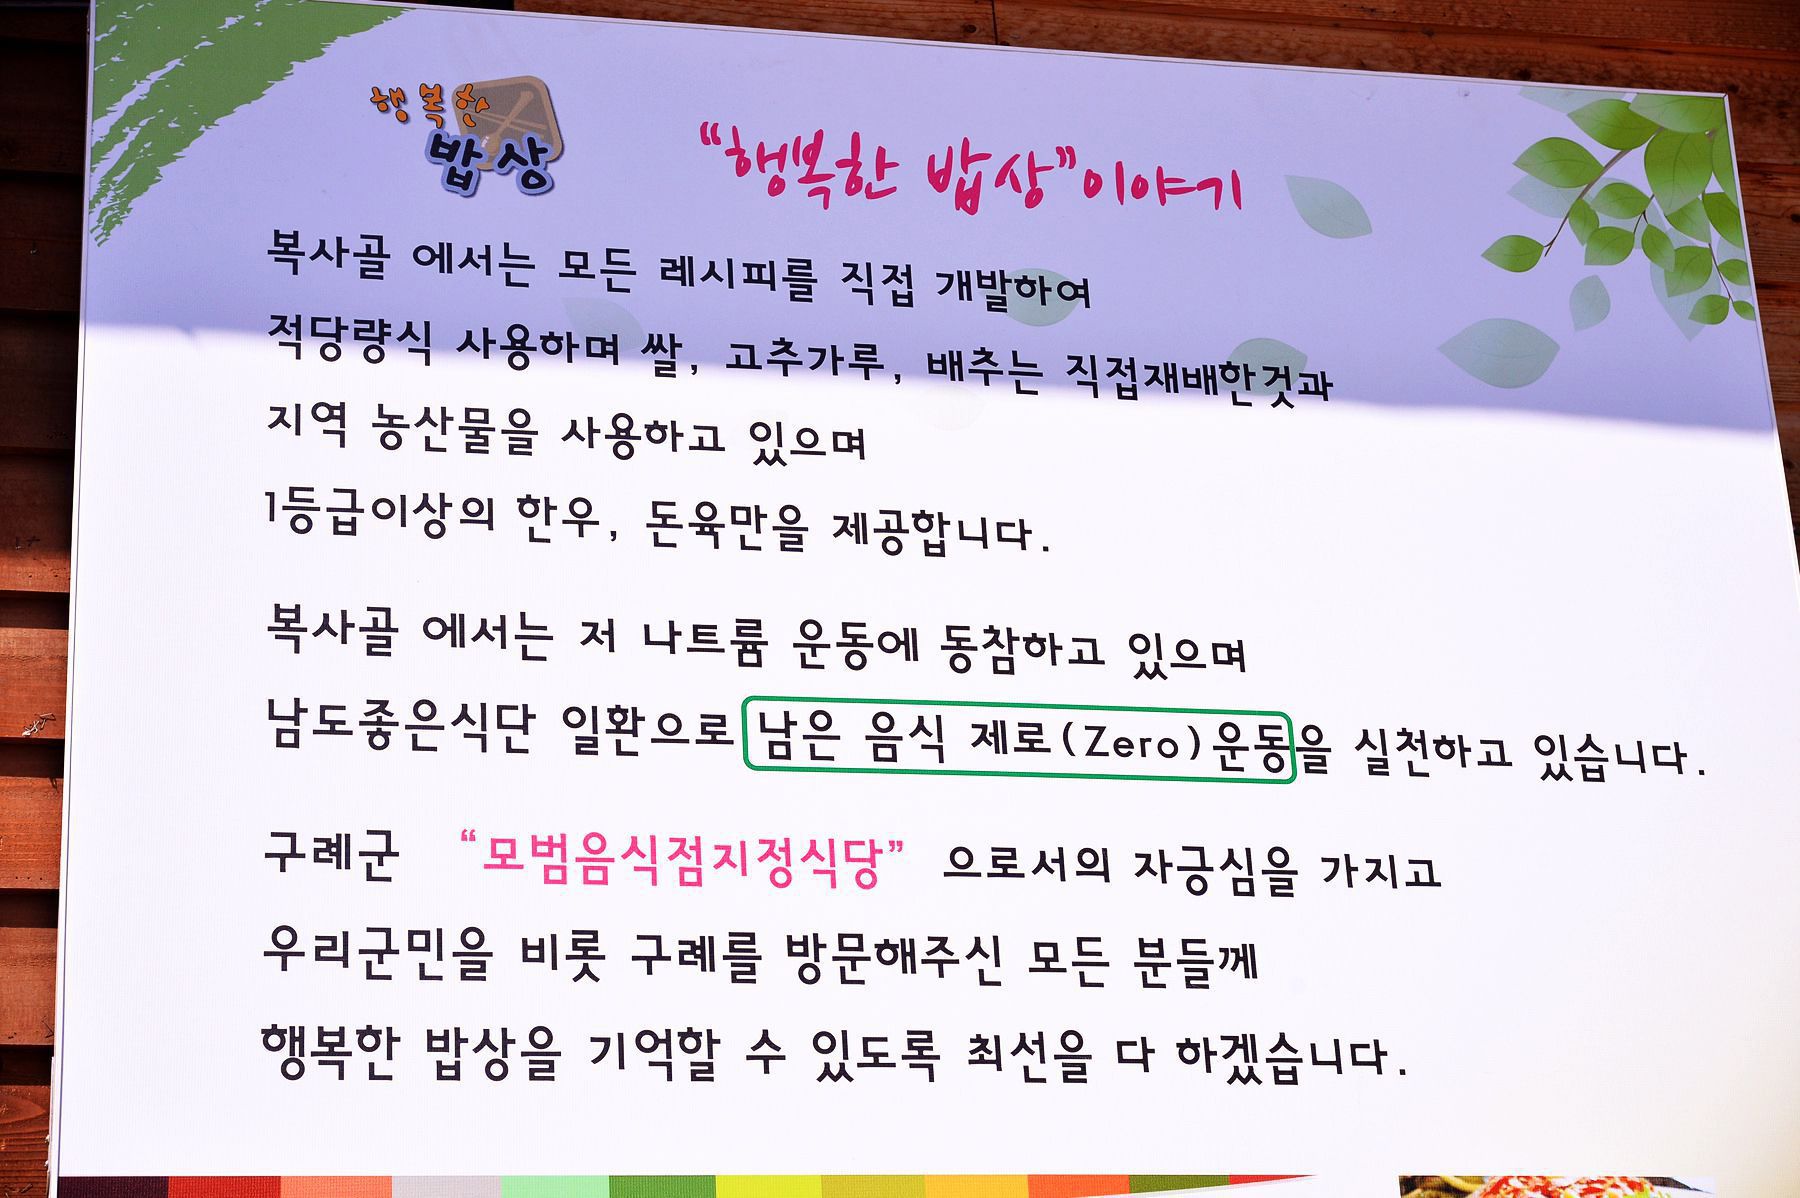 행복한
밥상
"행복한 밥상"이야기
복사골 에서는 모든 레시피를 직접 개발하여
적당량식 사용하며 쌀, 고추가루, 배추는 직접재배한것과
지역 농산물을 사용하고 있으며
1등급이상의 한우, 돈육만을 제공합니다.
복사골 에서는 저 나트륨 운동에 동참하고 있으며
남도좋은식단 일환으로 남은 음식 제로(Zero)운동을 실천하고 있습니다.
구례군 "모범음식점지정식당" 으로서의 자긍심을 가지고
우리군민을 비롯 구례를 방문해주신 모든 분들께
행복한 밥상을 기억할 수 있도록 최선을 다 하겠습니다.